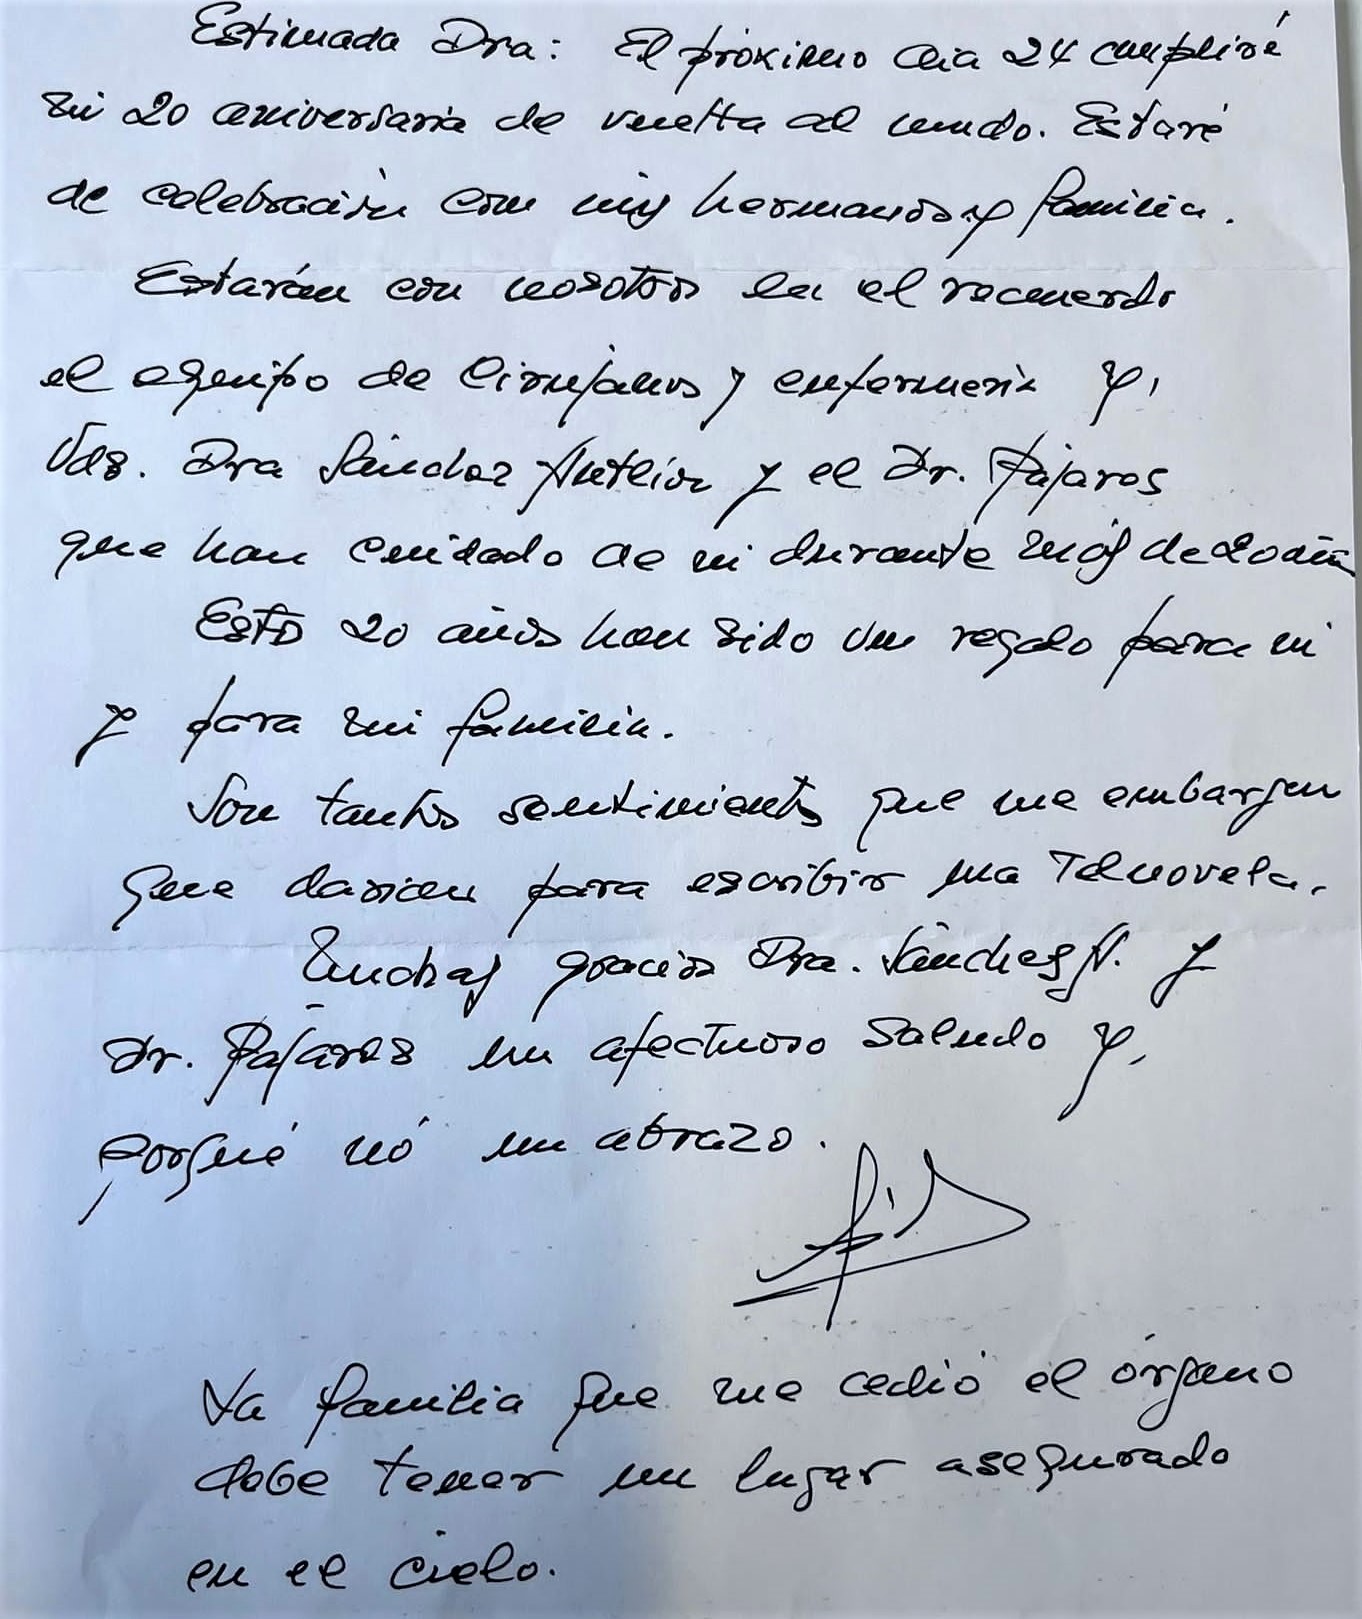 Estimada Dra: El próximo dia 24 cumpliré
mi 20 aniversario de vuelta al mundo. Estaré
de celebración con mis hermanos y familia.
Estarán con nosotros en el recuerdo
el equipo de Cirujanos y enfermeria y,
Vds. Dra Sánchez Antlión y el Dr. Pajaros
que han cuidado de mi durante más de 20 años
Estos 20 años han sido un regalo para mi
y para mi familia.
Son tantos sentimientos que me embargan
que darian para escribir una Telenovela.
Muchas gracias Dra. Sánchez A. y
Dr. Pajares un afectuoso saludo y,
porqué nó un abrazo.
La familia que me cedió el órgano
debe tener un lugar asegurado
en el cielo.